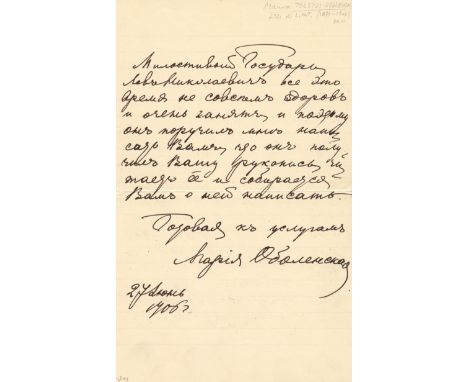 Милостивый Государь
Левъ Николаевичъ все это
время не совсемъ здоровъ
и очень занятъ, и поэтому
онъ поручилъ мнѣ напи
сать Вамъ, что онъ полу
чилъ Вашу рукопись, чи
таетъ её и собирается
Вамъ о ней написать.
Готовая къ услугамъ
Марія Оболенская
27 Июнь
1906 г.